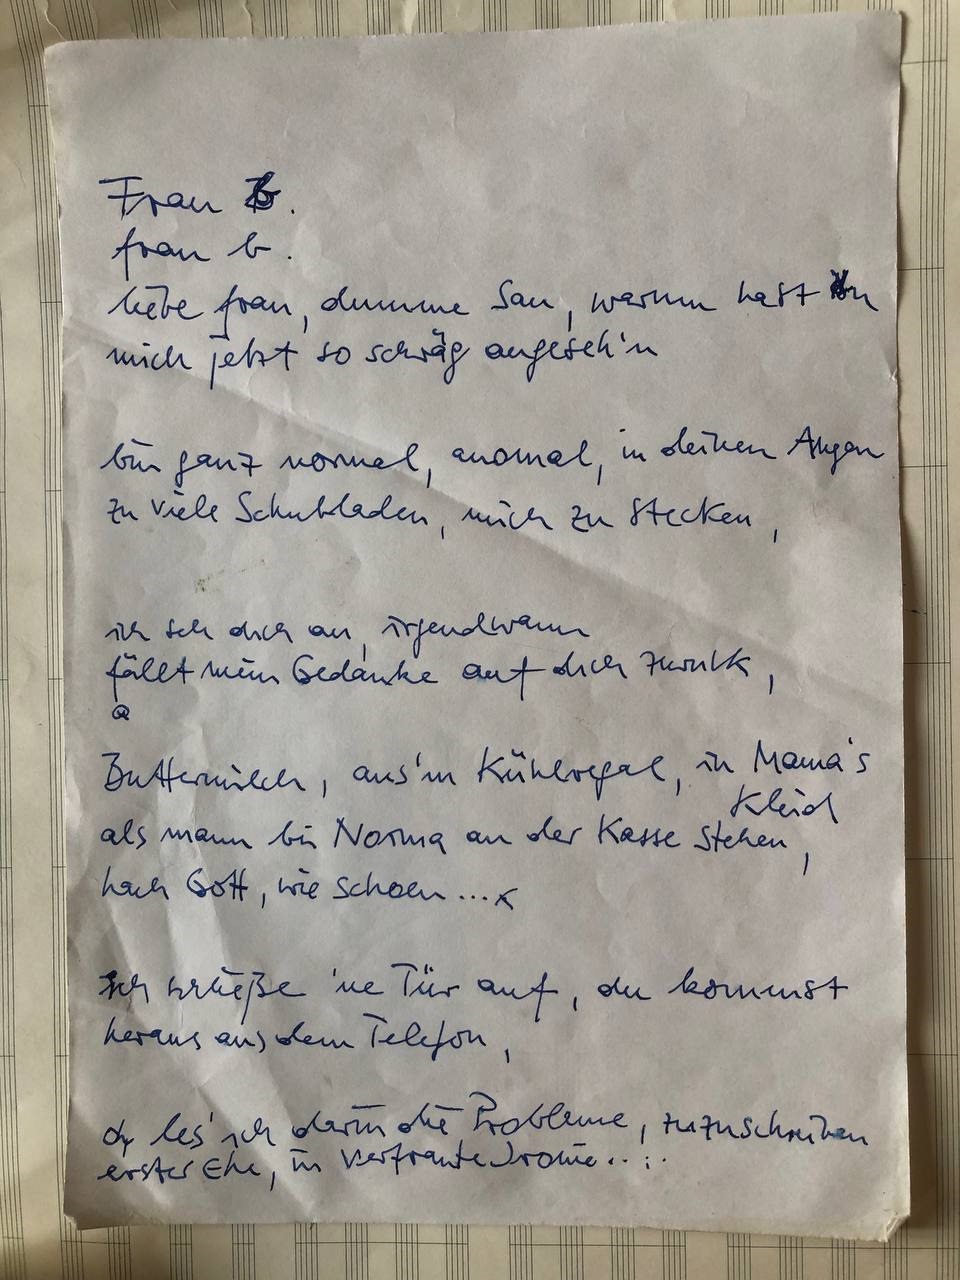 Frau B.
frau b.
liebe frau, dumme Sau, warum hast du
mich jetzt so schräg angeseh'n
bin ganz normal, anomal, in deinen Augen
zu viele Schubladen, mich zu stecken,
ich seh dich an, irgendwann
fällt mein Gedanke auf dich zurück,
Buttermilch, aus'm Kühlregal, in Mama's
Kleid
als mann bei Norma an der Kasse stehen,
hach Gott, wie schoen...
Ich schließe 'ne Tür auf, du kommst
heraus aus dem Telefon,
les' ich darin die Probleme, zuzuschreiben
erster Ehe, in vertraute Ironie.....